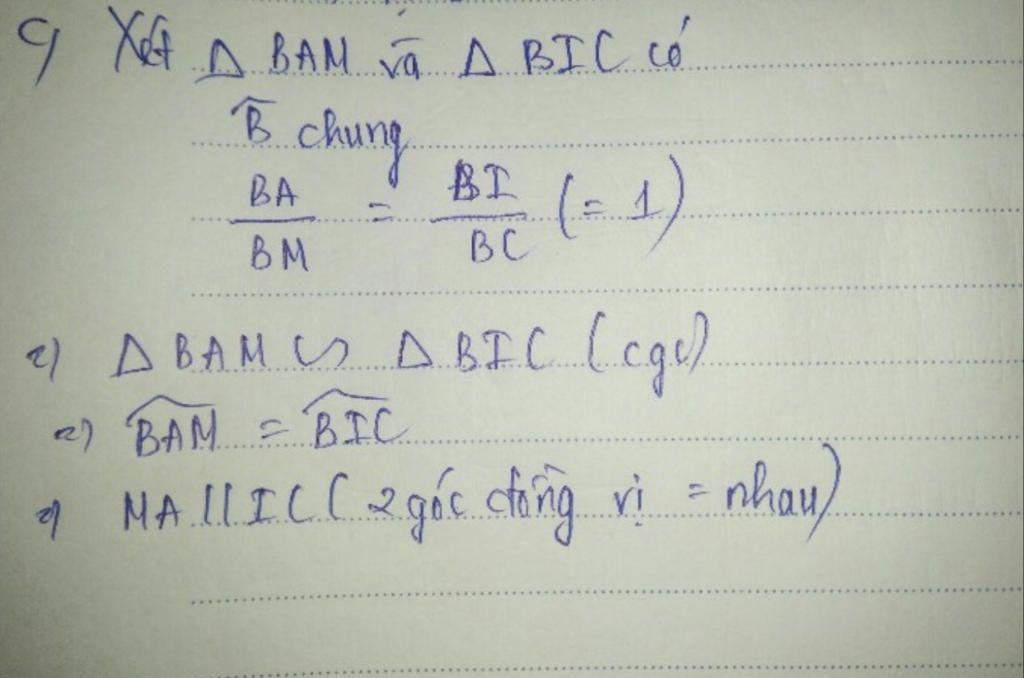 c) Xét Δ BAM và Δ BIC có
B̂ chung
BA/BM = BI/BC (= 1)
=) Δ BAM ∽ Δ BIC (cgc)
=) B̂AM = B̂IC
=) MA // IC ( 2 góc đồng vị = nhau)